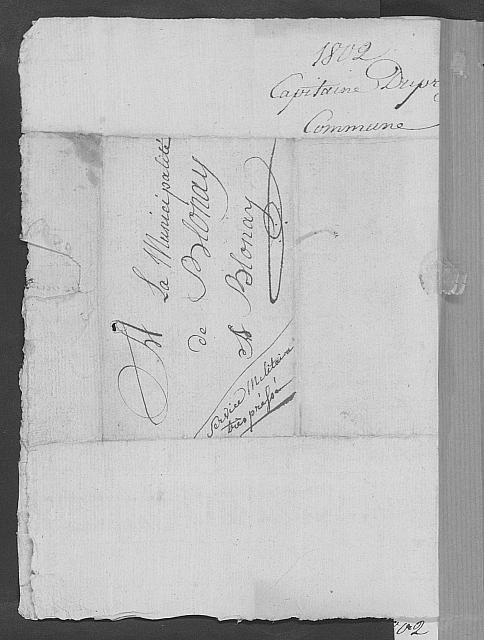 1802
Capitaine Dupr
Commune
A La Municipalité
de Blonay
à Blonay
Service Militaire
très préssé